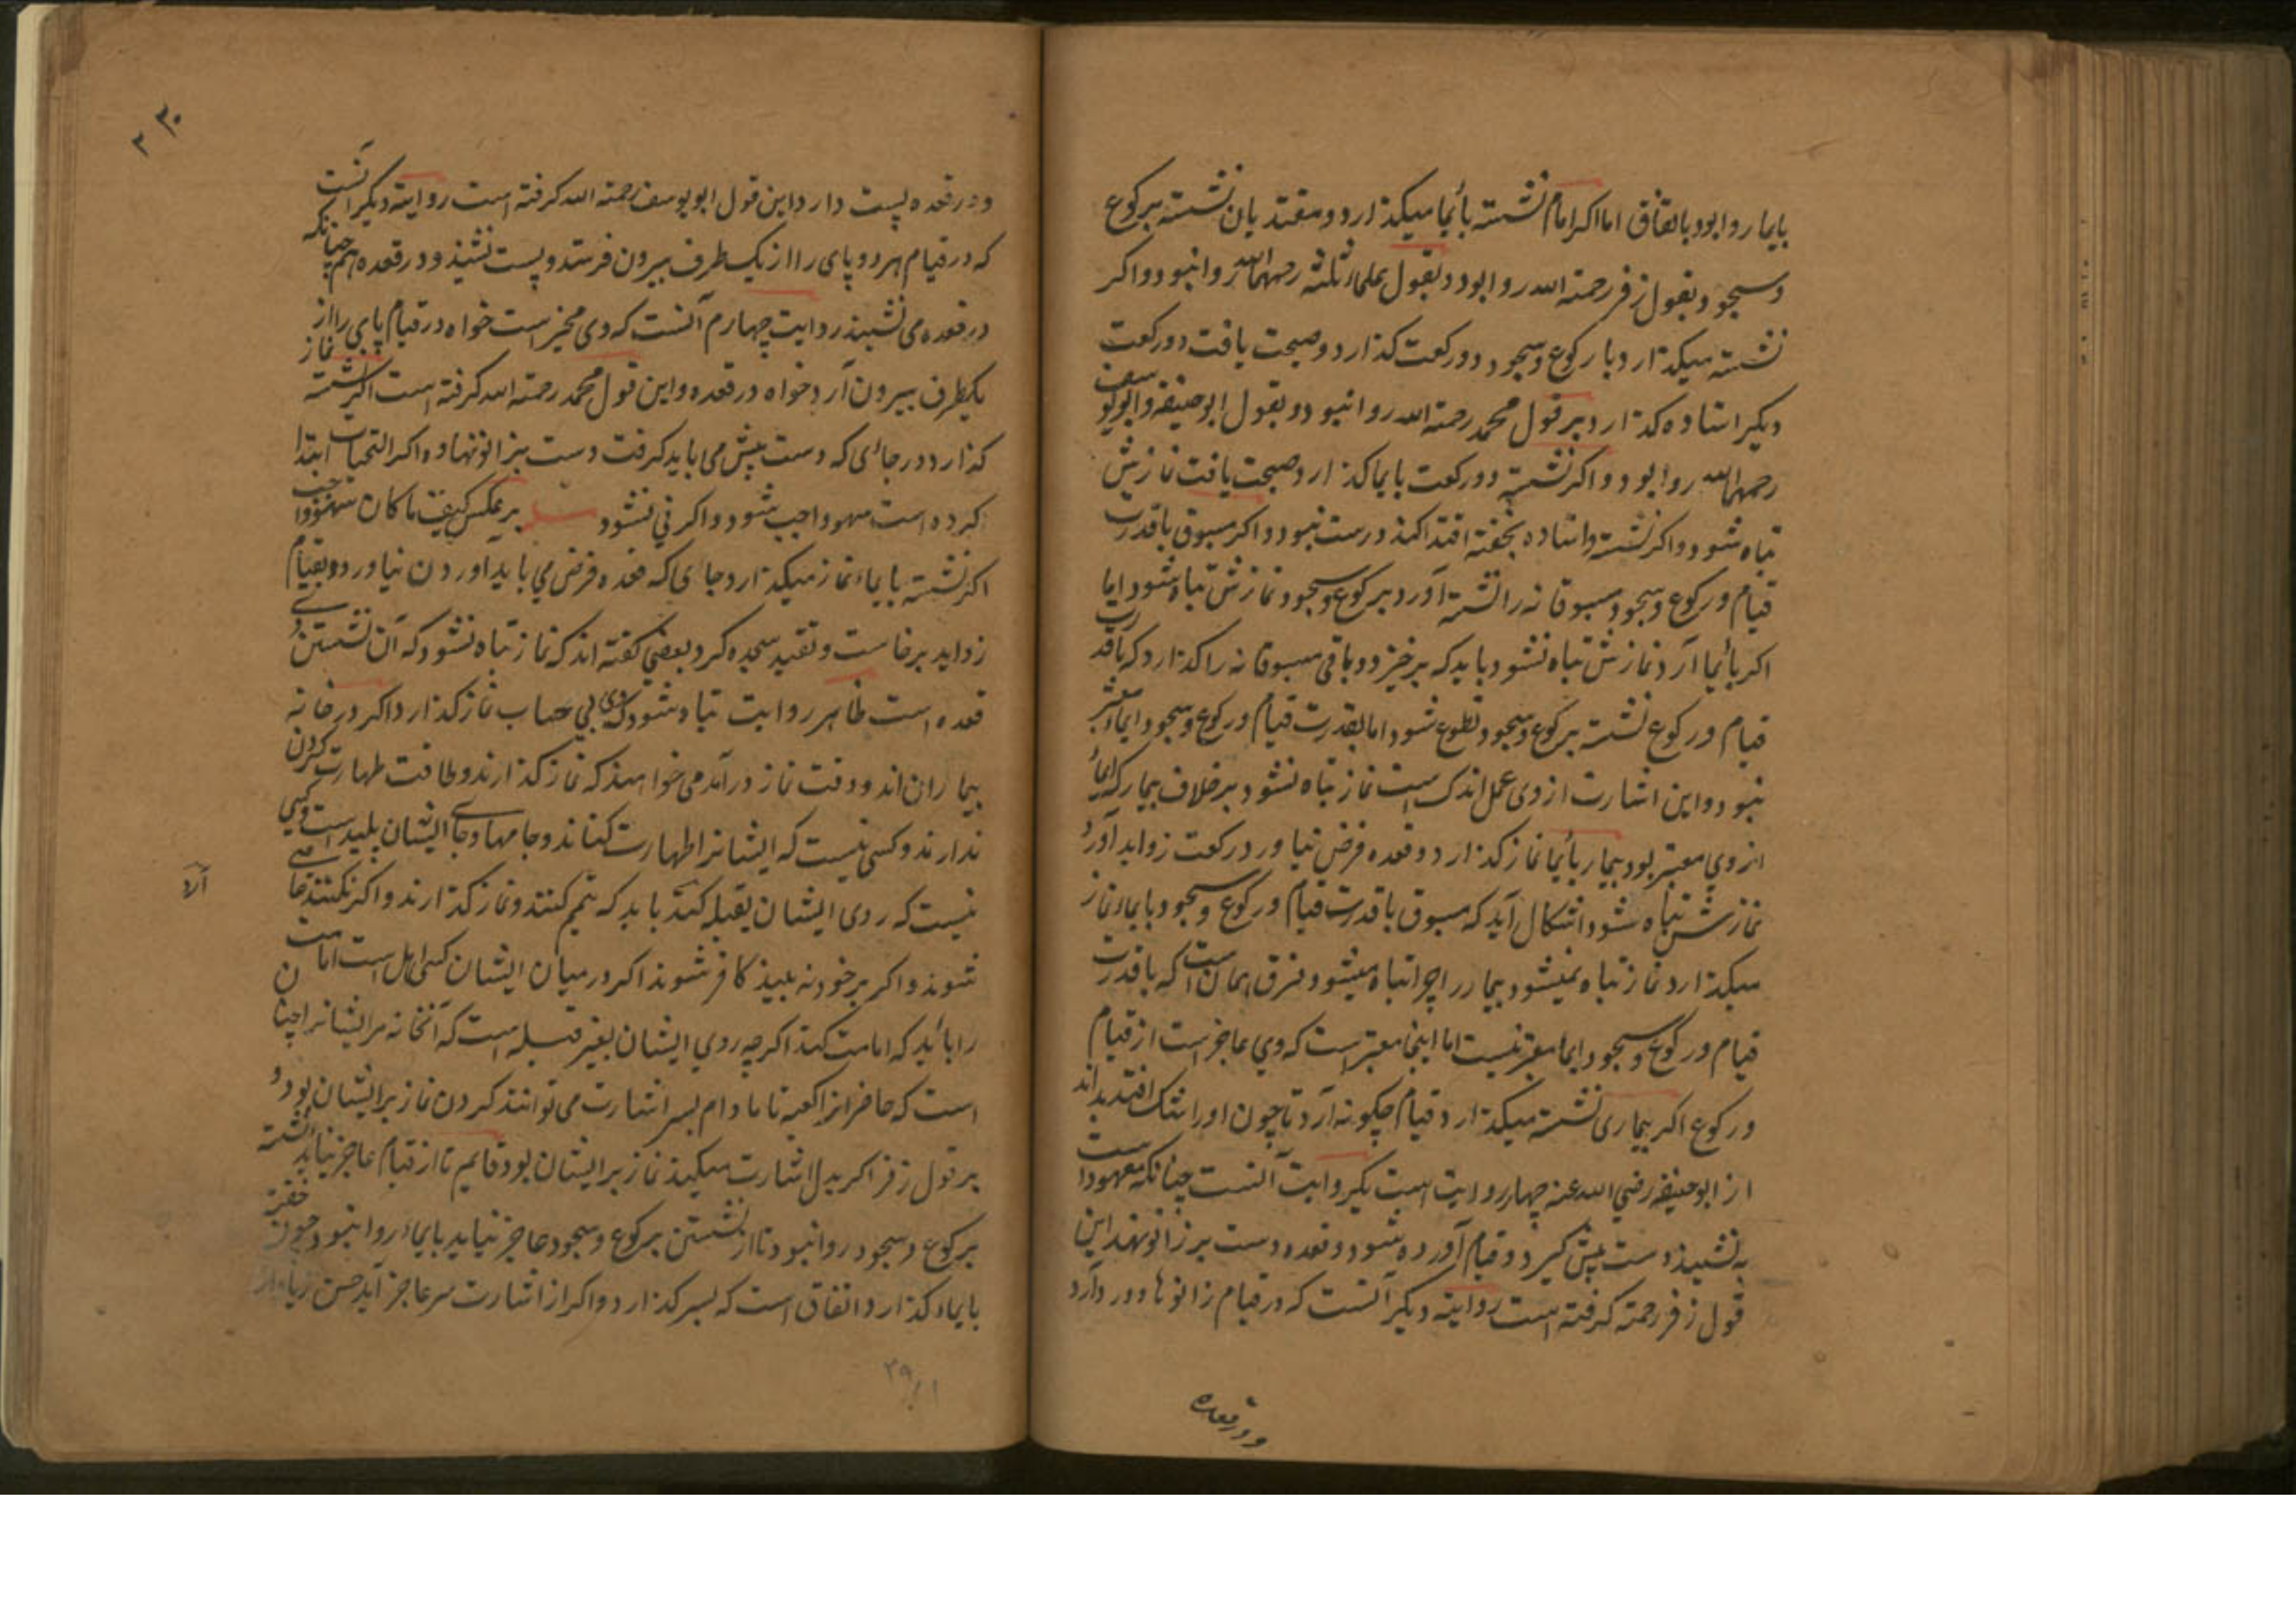 بایما روا بود باتفاق اما اکر امام نشسته بأیما میکذارد و مقتدیان نشسته برکوع
و سجود بقول زفر رحمته الله روا بود و بقول علماء ثلثه رحمهم الله روا نبود و اکر
نشسته میکذارد با رکوع و سجود دو رکعت کذارد و صحت یافت دو رکعت
دیکر استاده کذارد بر قول محمد رحمته الله روا نبود و بقول ابو حنیفه و ابو یوسف
رحمهما الله روا بود و اکر نشسته دو رکعت بایما کذارد صحت یافت نمازش
تباه شود و اکر نشسته و استاده بخفته اقتدا کند درست نبود و اکر مسبوق باقدرت
قیام و رکوع و سجود مسبوقانه را نشسته آورد برکوع و سجود نمازش تباه شود اما
اکر بأیما آرد نمازش تباه نشود باید که برخیزد و باقی مسبوقانه را کذارد که باقدرت
قیام و رکوع نشسته برکوع و سجود تطوع شود اما بقدرت قیام و رکوع و سجود ایما معتبر
نبود و این اشارت از وی عمل اندک است نماز تباه نشود برخلاف بیمار که ایماء
از وی معتبر بود بیمار بأیما نماز کذارد و قعده فرض نیاورد رکعت زواید آورد
نمازش تباه شود اشکال آید که مسبوق باقدرت قیام و رکوع و سجود بایماء نماز
میکذارد نماز تباه نمیشود بیمار را چرا تباه میشود فرق همان است که باقدرت
قیام و رکوع و سجود ایما معتبر نیست اما اینجا معتبر است که وی عاجز است از قیام
و رکوع اکر بیماری نشسته میکذارد قیام چکونه آرد تا چون او را شک افتد بداند
از ابو حنیفه رضی الله عنه چهار روایت است یکی روایت آنست چنانکه معهود است
به نشیند دست پیش کیرد و قیام آورده شود و قعده دست بر زانو نهد این
قول زفر رحمته کرفته است روایته دیکر آنست که در قیام زانوها دور دارد
و در قعده
۳۰
۳
و در قعده پست دارد این قول ابو یوسف رحمته الله کرفته است روایته دیکر آنست
که در قیام هر دو پای را از یک طرف بیرون فرستد و پست نشیند و در قعده هم چنانکه
در قعده می نشیند روایت چهارم آنست که وی مخیر است خواه در قیام پای را از
یکطرف بیرون آرد خواه در قعده و این قول محمد رحمته الله کرفته است اکر نشسته نماز
کذارد در جائی که دست پیش می باید کرفت دست بزانو نهاده اکر التحیات ابتدا
کرده است سهو واجب شود و اکر نی نشود برعکس کیف ما کان سهو واجب
اکر نشسته بایماء نماز میکذارد جای که قعده فرض می باید آوردن نیاورد و بقیام
زواید برخاست و تقید سجده کرد بعضی کفته اند که نماز تباه نشود که آن نشستن وی
قعده است ظاهر روایت تباه شود که وی بی حساب نماز کذارد اکر در خانه
بیماران اند و وقت نماز درآمد می خواهند که نماز کذارند و طاقت طهارت کردن
ندارند و کسی نیست که ایشانرا طهارت کناند و جامها و جای ایشان پلید است و کسی
نیست که روی ایشان بقبله کند باید که تیمم کنند و نماز کذارند و اکر نکنند عاصی
آرد
شوند و اکر بر خود نه بیند کافر شوند اکر در میان ایشان کسی اهل است امامت
را باید که امامت کند اکرچه روی ایشان بغیر قبله است که آنخانه مر ایشانرا چنان
است که حاضرانرا کعبه تا مادام بسر اشارت می توانند کردن نماز بر ایشان بود و
بر قول زفر اکر بدل اشارت میکند نماز بر ایشان بود قایم تا از قیام عاجز نیاید نشسته
برکوع و سجود روا نبود تا از نشستن برکوع و سجود عاجز نیاید بایماء روا نبود چون خفته
بایماء کذارد اتفاق است که بسر کذارد و اکر از اشارت سر عاجز آید حسن زیاد
۲۹